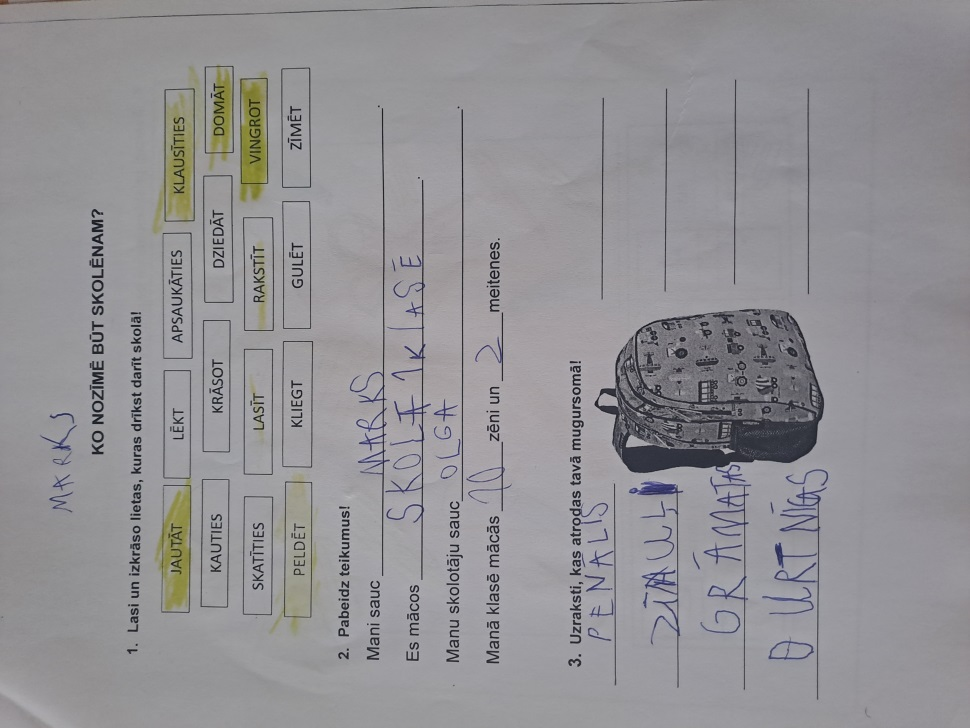 MARKS
KO NOZĪMĒ BŪT SKOLĒNAM?
1. Lasi un izkrāso lietas, kuras drīkst darīt skolā!
JAUTĀT LĒKT APSAUKĀTIES KLAUSĪTIES
KAUTIES KRĀSOT DZIEDĀT DOMĀT
SKATĪTIES LASĪT RAKSTĪT VINGROT
PELDĒT KLIEGT GULĒT ZĪMĒT
2. Pabeidz teikumus!
Mani sauc MARKS.
Es mācos SKOLĀ 1 KlASĒ.
Manu skolotāju sauc OLGA.
Manā klasē mācās 10 zēni un 2 meitenes.
3. Uzraksti, kas atrodas tavā mugursomā!
PENĀLIS
GRĀMATAS
BURTNĪCAS